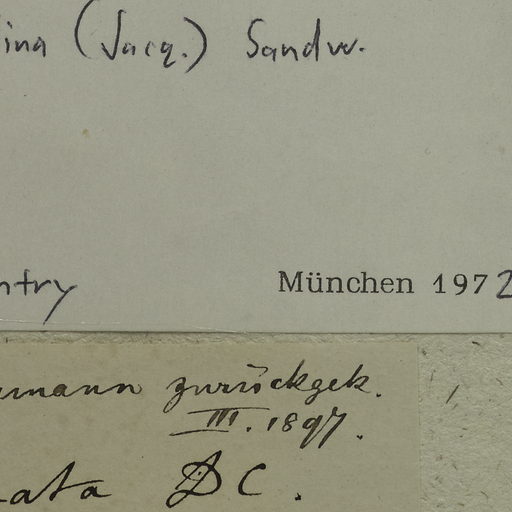 ina (Jacq.) Sandw.
ntry München 1972
mann zurückgek.
III. 1897.
ata DC.